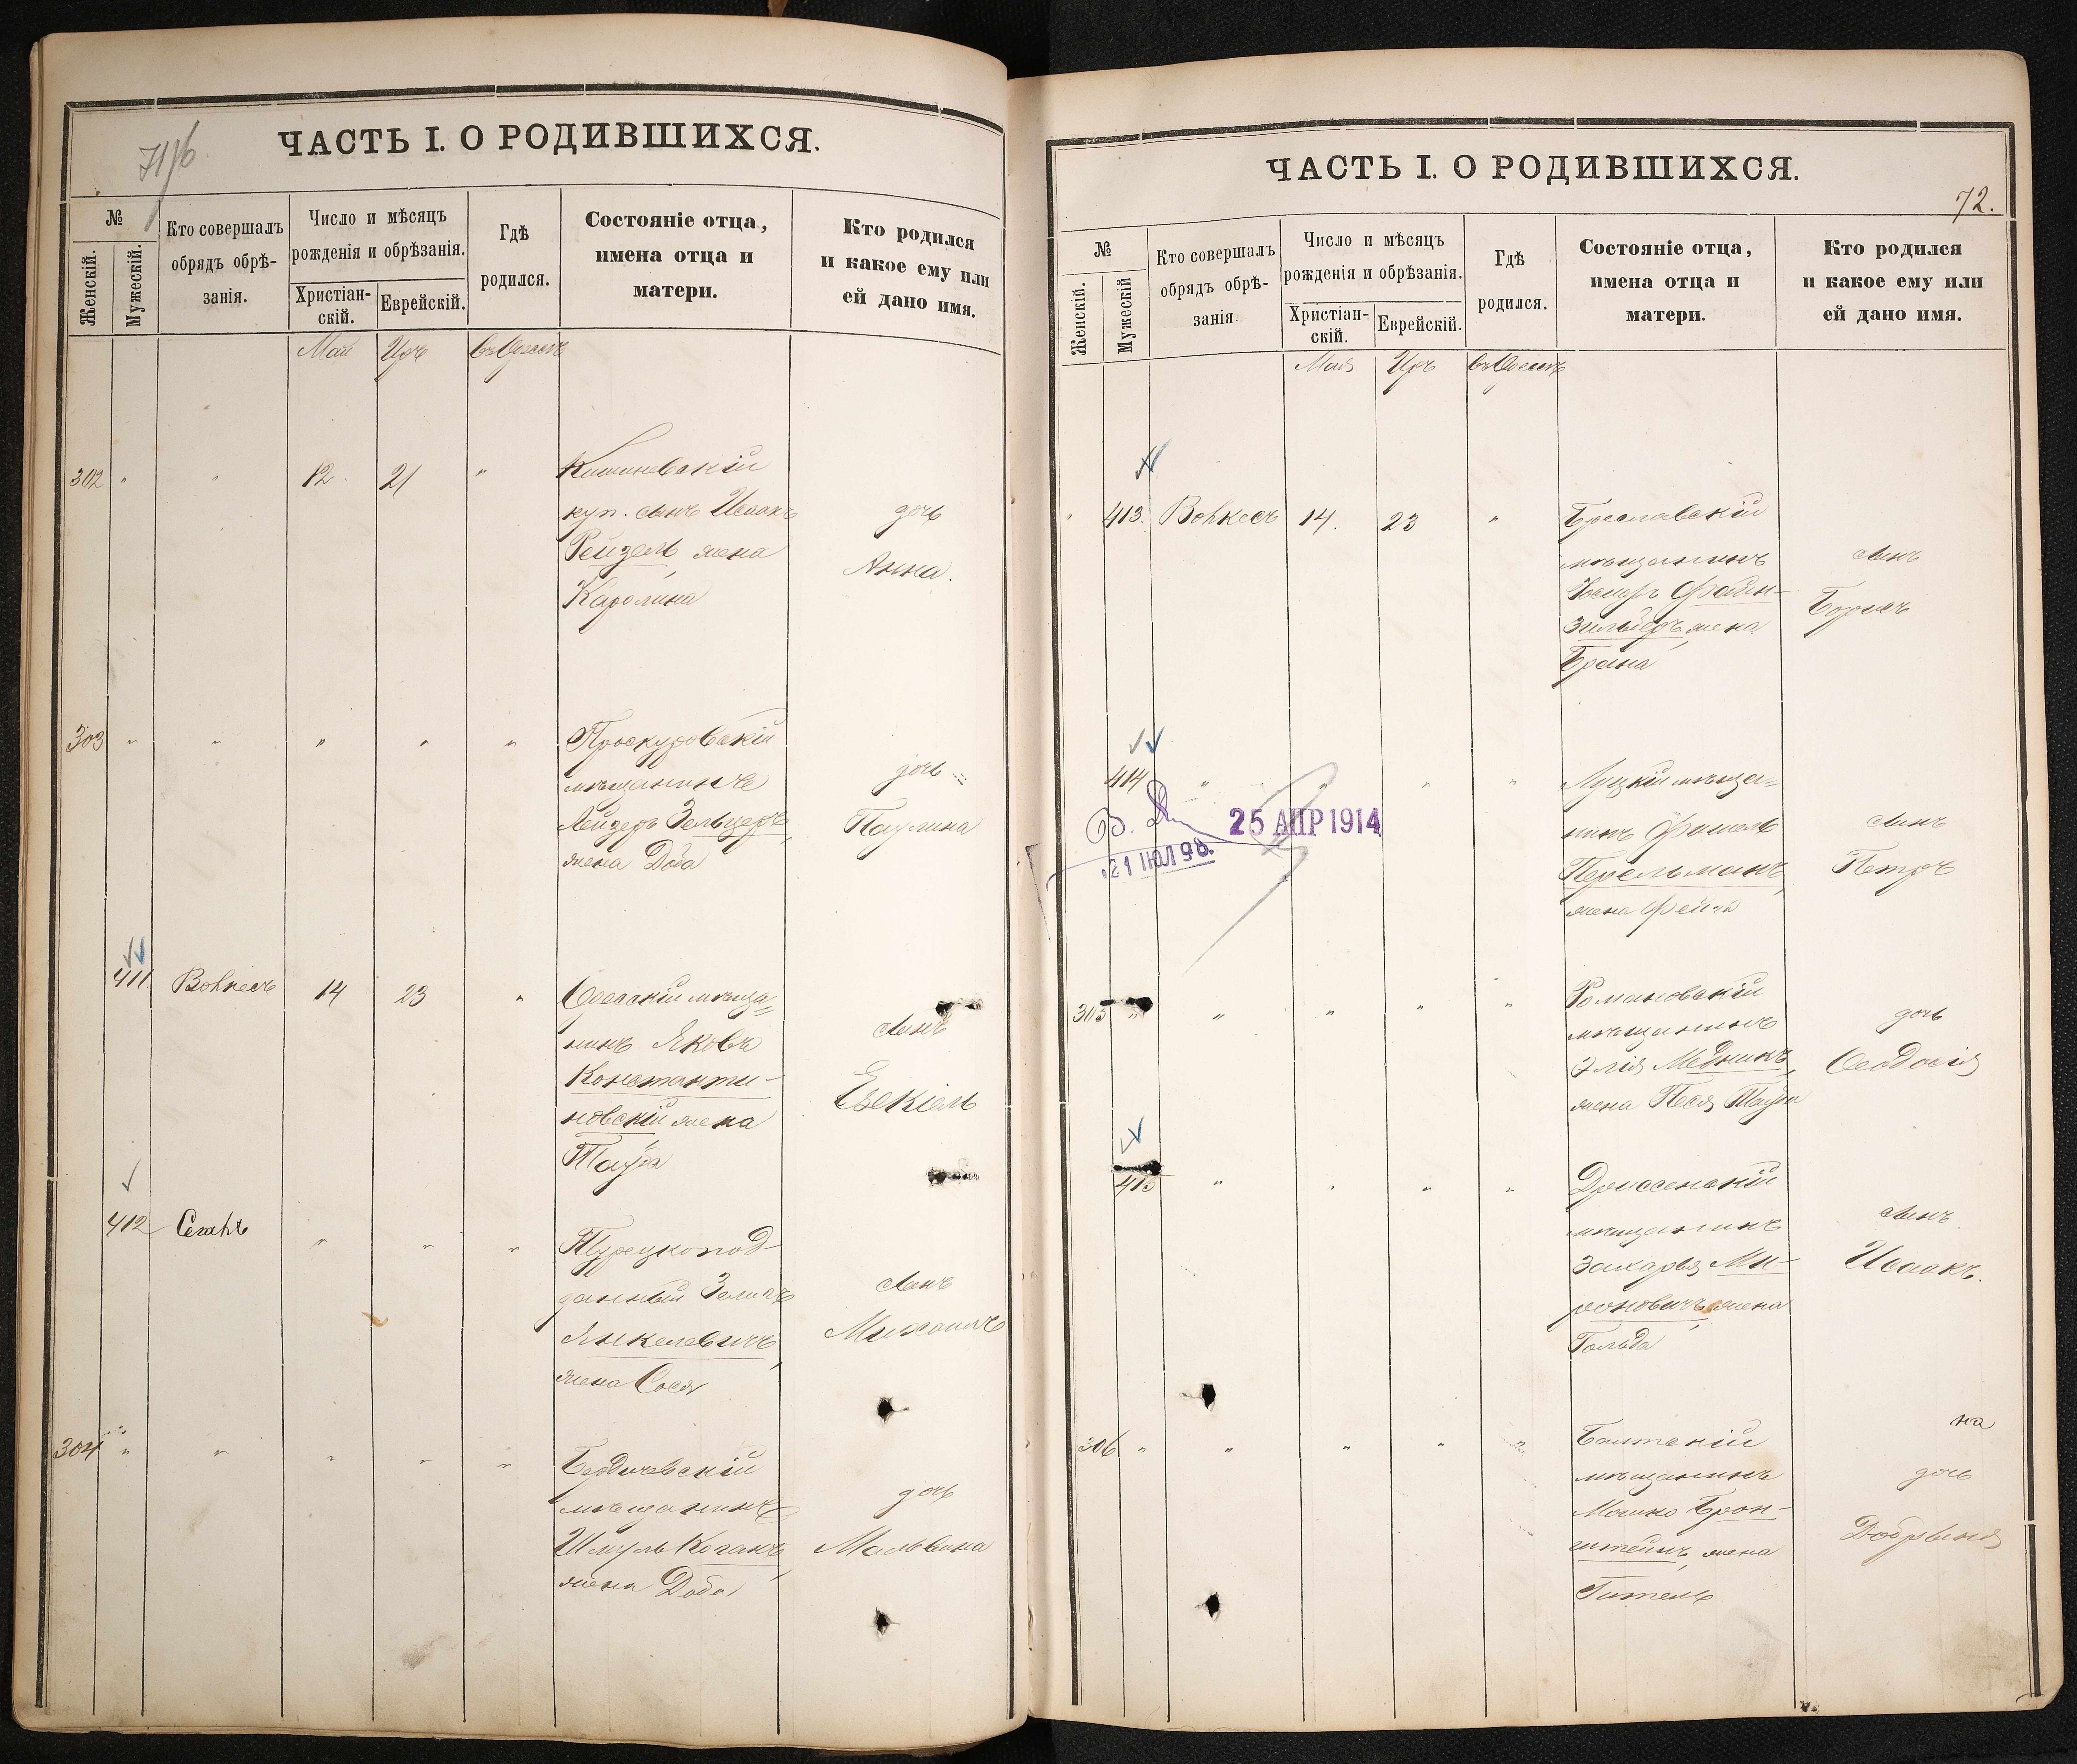 ЧАСТЬ I. О РОДИВШИХСЯ.
№
Женскій.
Мужескій.
Кто совершалъ
обрядъ обрѣ-
занія.
Число и мѣсяцъ
рожденія и обрѣзанія.
Христіан-
скій.
Еврейскій.
Гдѣ
родился.
Состояніе отца,
имена отца и
матери.
Кто родился
и какое ему или
ей дано имя.
Май Іяръ въ Одессѣ
302 " " 12 21 "
Кишиневскій
куп. сынъ Исаакъ
Рейзель, жена
Каролина
дочь
Анна.
303 " " " " "
Проскуровскій
мѣщанинъ
Лейзеръ Зельцеръ,
жена Доба
дочь
Паулина
411 14 23 "
Одесскій мѣща=
нинъ Яковъ
Константи-
новскій жена
Тауба
сынъ
Езекіель
412 " " "
Турецкопод-
данный
Янкелевичъ,
жена Сося
сынъ
Михаилъ
304 " " " " "
Бердичевскій
мѣщанинъ
Шмуль Коганъ,
жена Доба
дочь
Мальвина
ЧАСТЬ I. О РОДИВШИХСЯ.
72.
№
Женскій.
Мужескій
Кто совершалъ
обрядъ обрѣ-
занія
Число и мѣсяцъ
рожденія и обрѣзанія.
Христіан-
скій.
Еврейскій.
Гдѣ
родился.
Состояніе отца,
имена отца и
матери.
Кто родился
и какое ему или
ей дано имя.
Мая Іяръ въ Одессѣ
" 413. 14. 23 "
Брацлавскій
мѣщанинъ
Файн-
зильберъ, жена
Брана
сынъ
Борисъ
414 " " " "
Луцкій мѣща=
нинъ Фишель
Перельманъ,
жена Фейга
сынъ
Петръ
25 АПР 1914
21 ІЮЛ 98.
305 " " " " "
Романовскій
мѣщанинъ
Элія Медникъ,
жена Песя Тауба
дочь
Ѳеодосія
415 " " " "
Дриссенскій
мѣщанинъ
Захарья Ми-
роновичъ, жена
Гольда
сынъ
Исаакъ.
306 " " " " "
Балтскій
мѣщанинъ
Мошко Брон-
штейнъ, жена
Гитель
на
дочь
Добрыня